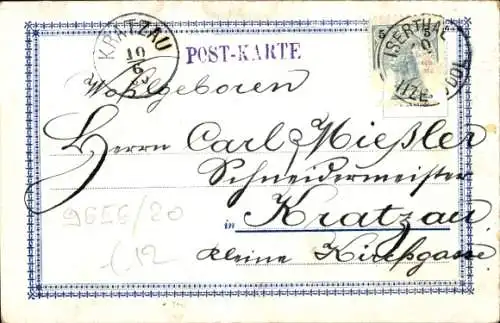 KRATZAU
19
6
POST-KARTE
ISERTHAL
Wohlgeboren
Herrn Carl Mießler
Schneidermeister
in Kratzau
kleine Kirchgasse
9656/80